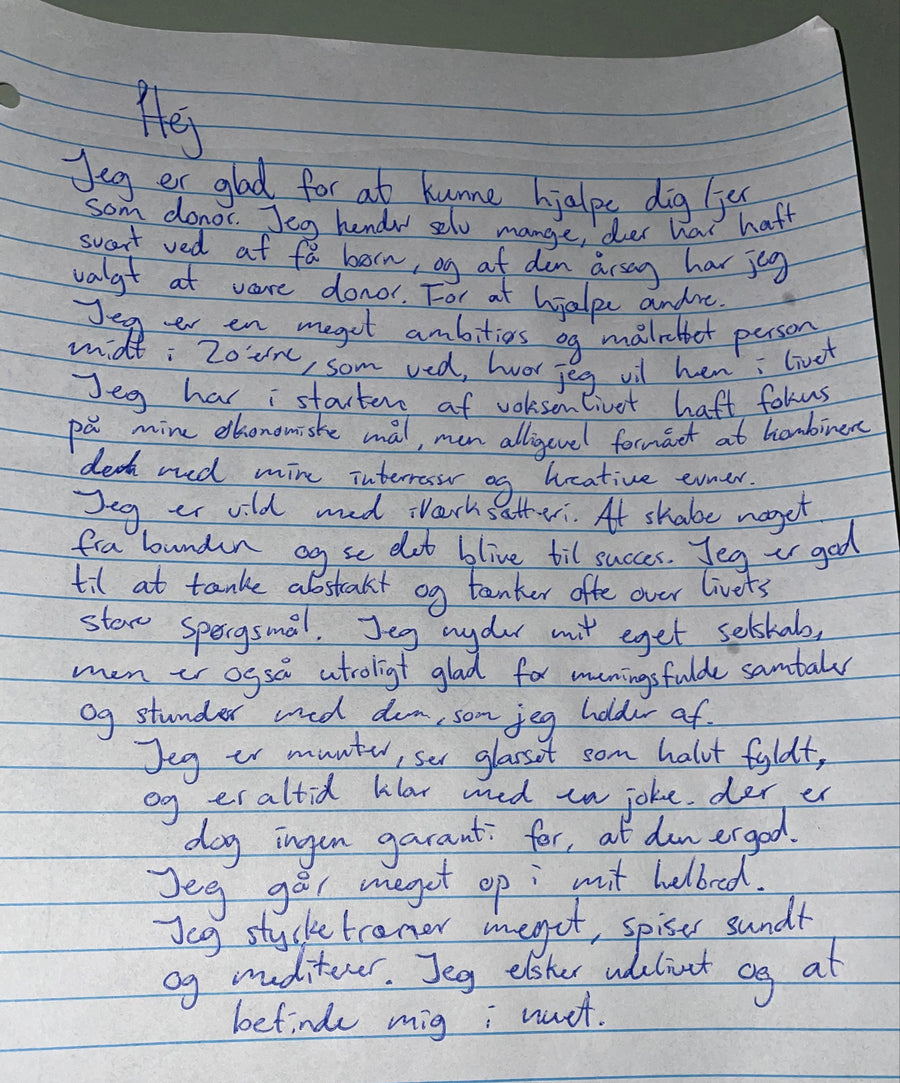 Hej
Jeg er glad for at kunne hjælpe dig/jer
som donor. Jeg kender selv mange, der har haft
svært ved at få børn, og af den årsag har jeg
valgt at være donor. For at hjælpe andre.
Jeg er en meget ambitiøs og målrettet person
midt i 20'erne, som ved, hvor jeg vil hen i livet
Jeg har i starten af voksenlivet haft fokus
på mine økonomiske mål, men alligevel formået at kombinere
dem med mine interresser og kreative evner.
Jeg er vild med iværksætteri. At skabe noget
fra bunden og se det blive til succes. Jeg er god
til at tænke abstrakt og tænker ofte over livets
store spørgsmål. Jeg nyder mit eget selskab,
men er også utroligt glad for meningsfulde samtaler
og stunder med dem, som jeg holder af.
Jeg er munter, ser glasset som halvt fyldt,
og er altid klar med en joke. der er
dog ingen garanti for, at den er god.
Jeg går meget op i mit helbred.
Jeg styrketræner meget, spiser sundt
og mediterer. Jeg elsker udelivet og at
befinde mig i nuet.